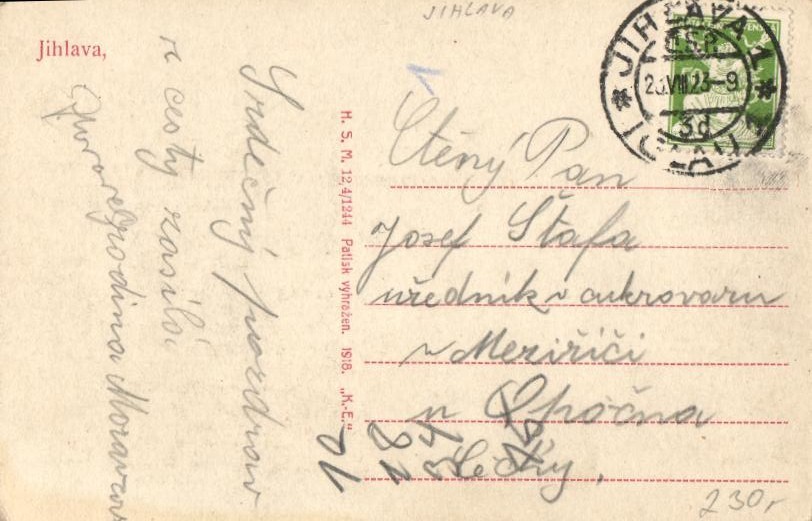 JIHLAVA
Jihlava,
JIHLAVA 1
ČSP.
23-9
3d
Srdečný pozdrav
z cesty zasílá
rodina
H. S. M. 12,4/1244 Patisk vyhražen. 1918. „K.-E."
Ctěný Pan
Josef Štafa
úředník v cukrovaru
v Meziříčí
u Opočna
Čechy.
230,-